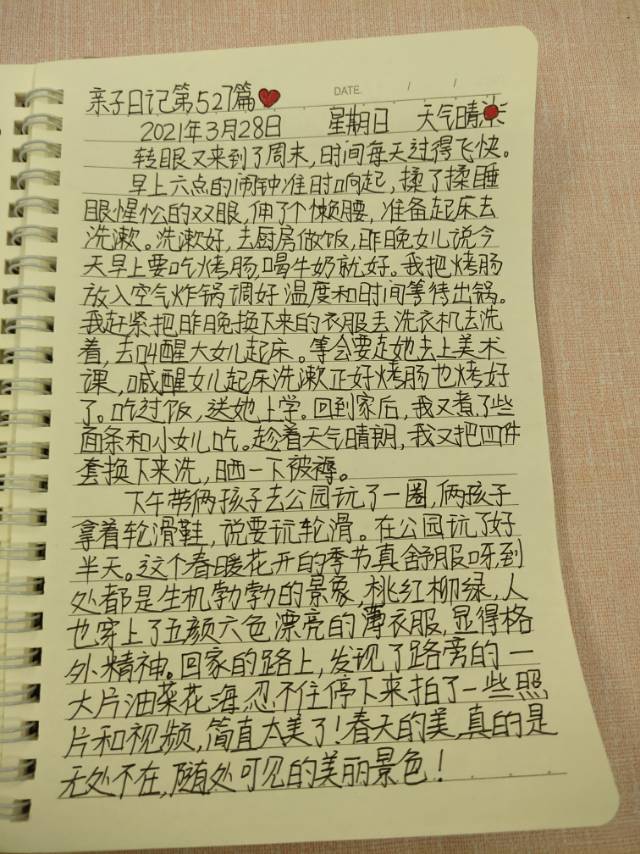 DATE. / /
亲子日记第527篇
2021年3月28日 星期日 天气晴
转眼又来到了周末,时间每天过得飞快。
早上六点的闹钟准时响起,揉了揉睡
眼惺忪的双眼,伸了个懒腰,准备起床去
洗漱。洗漱好,去厨房做饭,昨晚女儿说今
天早上要吃烤肠,喝牛奶就好。我把烤肠
放入空气炸锅调好温度和时间等待出锅。
我赶紧把昨晚换下来的衣服丢洗衣机去洗
着,去叫醒大女儿起床。等会要送她去上美术
课,喊醒女儿起床洗漱正好烤肠也烤好
了。吃过饭,送她上学。回到家后,我又煮了些
面条和小女儿吃。趁着天气晴朗,我又把四件
套换下来洗,晒一下被褥。
下午带俩孩子去公园玩了一圈,俩孩子
拿着轮滑鞋,说要玩轮滑。在公园玩了好
半天。这个春暖花开的季节真舒服呀,到
处都是生机勃勃的景象,桃红柳绿,人
也穿上了五颜六色漂亮的薄衣服,显得格
外精神。回家的路上,发现了路旁的一
大片油菜花海,忍不住停下来拍了一些照
片和视频,简直太美了!春天的美,真的是
无处不在,随处可见的美丽景色!